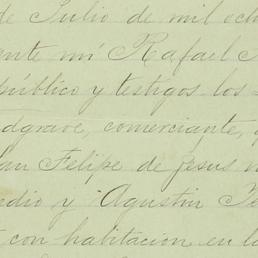 de Julio de mil och
ente mí Rafael
público y testigos los
dgrave, comerciante,
an Felipe de Jesus
edio y Agustin
con habitacion en la